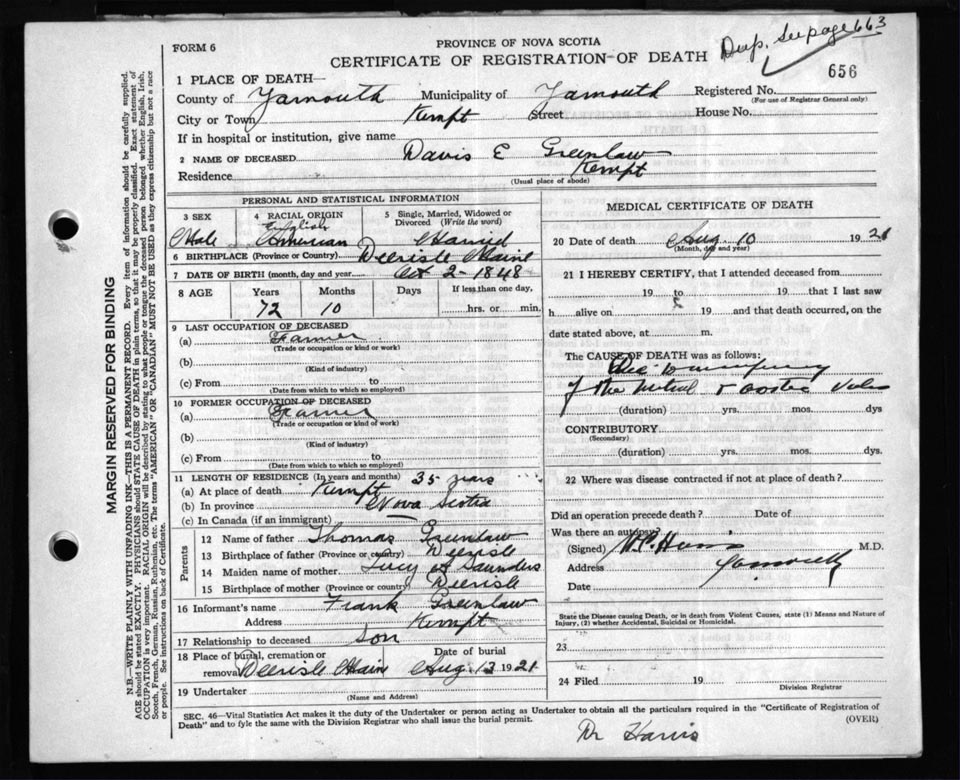 FORM 6
PROVINCE OF NOVA SCOTIA
CERTIFICATE OF REGISTRATION OF DEATH
Dup. See page 663
656
1 PLACE OF DEATH—
County of Yarmouth Municipality of Yarmouth Registered No.
(For use of Registrar General only)
City or Town Kempt Street House No.
If in hospital or institution, give name
2 NAME OF DECEASED Davis E Greenlaw
Residence Kempt
(Usual place of abode)
PERSONAL AND STATISTICAL INFORMATION
3 SEX 4 RACIAL ORIGIN 5 Single, Married, Widowed or Divorced (Write the word)
English
Male American Married
6 BIRTHPLACE (Province or Country) Deerisle Maine
7 DATE OF BIRTH (month, day and year) Oct 2-1848
8 AGE Years Months Days If less than one day,
72 10 hrs. or min.
9 LAST OCCUPATION OF DECEASED
(a) Farmer
(Trade or occupation or kind or work)
(b)
(Kind of industry)
(c) From to
(Date from which to which so employed)
10 FORMER OCCUPATION OF DECEASED
(a) Farmer
(Trade or occupation or kind of work)
(b)
(Kind of industry)
(c) From to
(Date from which to which so employed)
11 LENGTH OF RESIDENCE (In years and months) 35 years
(a) At place of death Kempt
(b) In province Nova Scotia
(c) In Canada (if an immigrant)
Parents
12 Name of father Thomas Greenlaw
13 Birthplace of father (Province or country) Deerisle
14 Maiden name of mother Lucy A Saunders
15 Birthplace of mother (Province or country) Deerisle
16 Informant's name Frank Greenlaw
Address Kempt
17 Relationship to deceased Son
18 Place of burial, cremation or removal Deerisle Maine Date of burial Aug. 13 1921
19 Undertaker
(Name and Address)
MEDICAL CERTIFICATE OF DEATH
20 Date of death Aug. 10 1921
(Month, day and year)
21 I HEREBY CERTIFY, that I attended deceased from
19 to 19 that I last saw
h alive on 19 and that death occurred, on the
date stated above, at m.
The CAUSE OF DEATH was as follows:
of the Mitral + aortic
(duration) yrs. mos. dys
CONTRIBUTORY
(Secondary)
(duration) yrs. mos. dys.
22 Where was disease contracted if not at place of death?
Did an operation precede death? Date of
Was there an autopsy?
(Signed) Harris M.D.
Address Yarmouth
Date
State the Disease causing Death, or in death from Violent Causes, state (1) Means and Nature of Injury, (2) whether Accidental, Suicidal or Homicidal.
23
24 Filed 19
Division Registrar
SEC. 46—Vital Statistics Act makes it the duty of the Undertaker or person acting as Undertaker to obtain all the particulars required in the "Certificate of Registration of
Death" and to fyle the same with the Division Registrar who shall issue the burial permit.
(OVER)
Dr Harris
MARGIN RESERVED FOR BINDING
N.B.—WRITE PLAINLY WITH UNFADING INK—THIS IS A PERMANENT RECORD. Every item of information should be carefully supplied.
AGE should be stated EXACTLY. PHYSICIANS should STATE CAUSE OF DEATH in plain terms, so that it may be properly classified. Exact statement of
OCCUPATION is very important. RACIAL ORIGIN will be described by stating to what people or tongue the deceased person belonged whether English, Irish,
Scotch, French, German, Russian, Ruthenian, etc. The terms "AMERICAN" or "CANADIAN" MUST NOT BE USED as they express citizenship but not a race
or people. See instructions on back of Certificate.